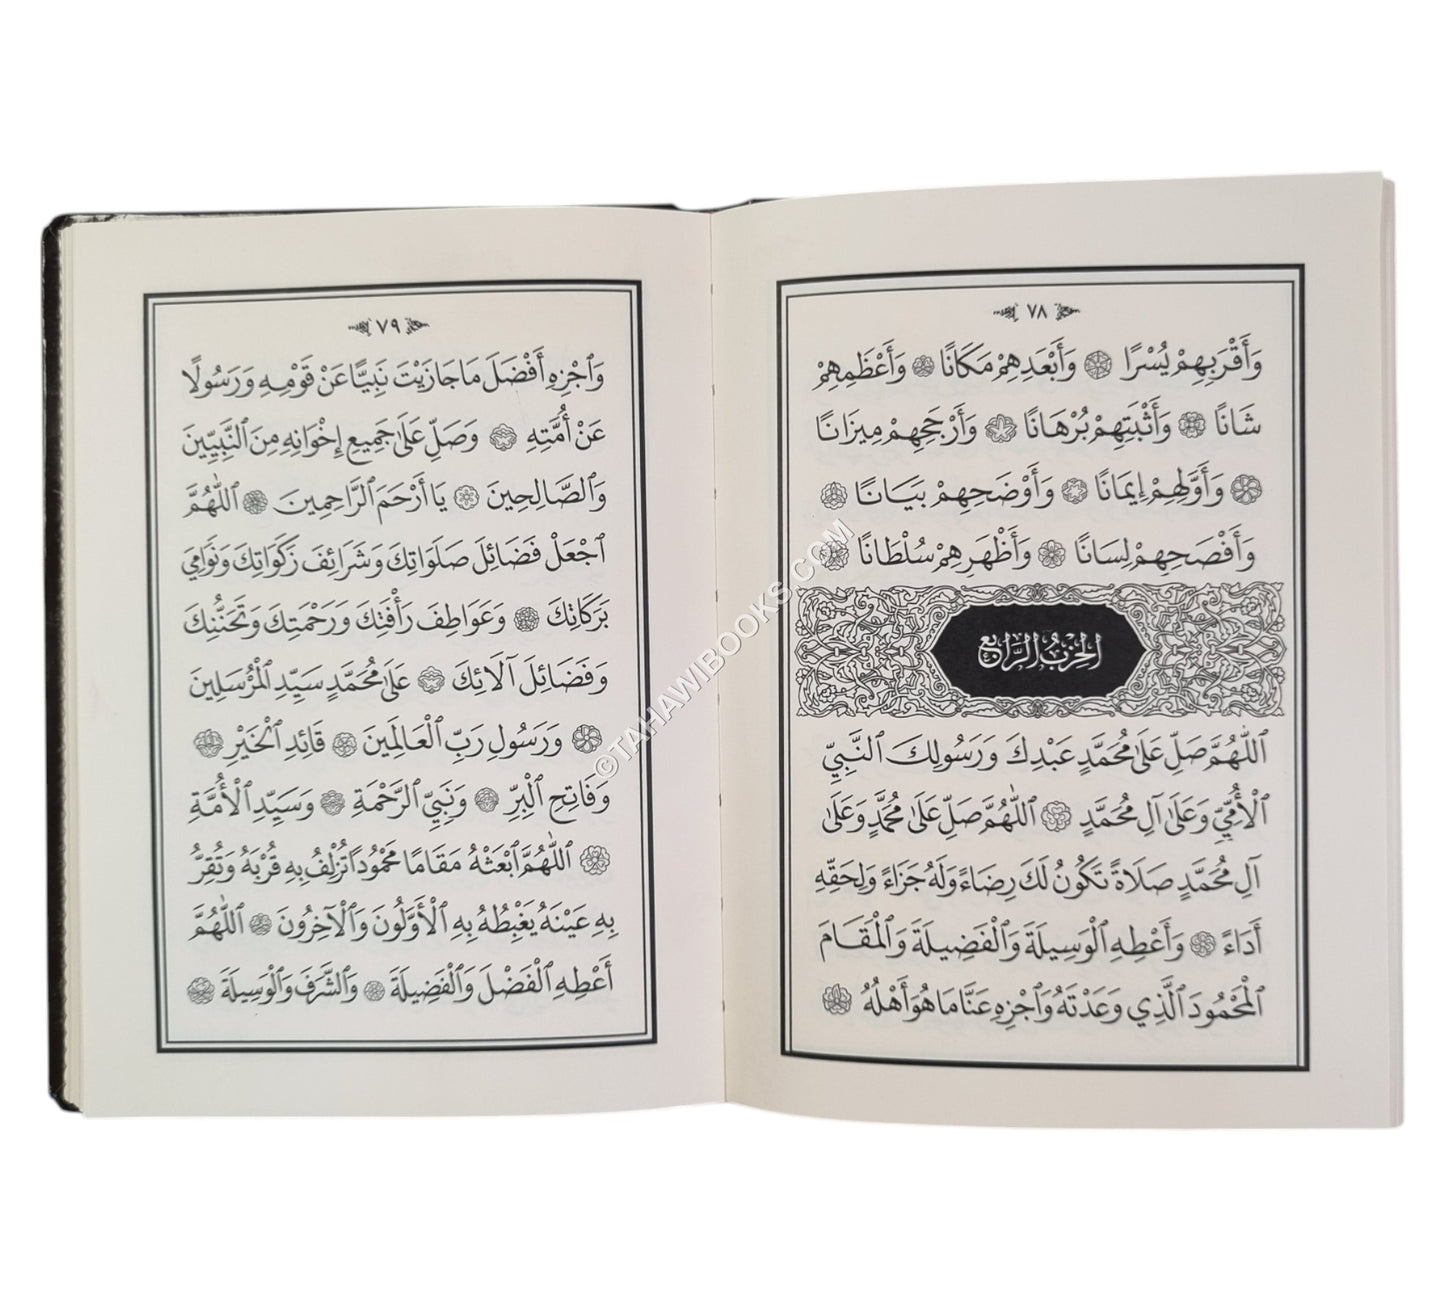 ٧٨
وَأَقْرَبِهِمْ يُسْرًا وَأَبْعَدِهِمْ مَكَانًا وَأَعْظَمِهِمْ
شَانًا وَأَثْبَتِهِمْ بُرْهَانًا وَأَرْجَحِهِمْ مِيزَانًا
وَأَوَّلِهِمْ إِيمَانًا وَأَوْضَحِهِمْ بَيَانًا
وَأَفْصَحِهِمْ لِسَانًا وَأَظْهَرِهِمْ سُلْطَانًا
الحِزْبُ الرَّابِعُ
اَللّٰهُمَّ صَلِّ عَلَىٰ مُحَمَّدٍ عَبْدِكَ وَرَسُولِكَ ٱلنَّبِيِّ
ٱلْأُمِّيِّ وَعَلَىٰ آلِ مُحَمَّدٍ اَللّٰهُمَّ صَلِّ عَلَىٰ مُحَمَّدٍ وَعَلَىٰ
آلِ مُحَمَّدٍ صَلَاةً تَكُونُ لَكَ رِضَاءً وَلَهُ جَزَاءً وَلِحَقِّهِ
أَدَاءً وَأَعْطِهِ ٱلْوَسِيلَةَ وَٱلْفَضِيلَةَ وَٱلْمَقَامَ
ٱلْمَحْمُودَ ٱلَّذِي وَعَدْتَهُ وَٱجْزِهِ عَنَّا مَا هُوَ أَهْلُهُ
٧٩
وَٱجْزِهِ أَفْضَلَ مَا جَازَيْتَ نَبِيًّا عَنْ قَوْمِهِ وَرَسُولًا
عَنْ أُمَّتِهِ وَصَلِّ عَلَىٰ جَمِيعِ إِخْوَانِهِ مِنَ ٱلنَّبِيِّينَ
وَٱلصَّالِحِينَ يَا أَرْحَمَ ٱلرَّاحِمِينَ اَللّٰهُمَّ
ٱجْعَلْ فَضَائِلَ صَلَوَاتِكَ وَشَرَائِفَ زَكَوَاتِكَ وَنَوَامِيَ
بَرَكَاتِكَ وَعَوَاطِفَ رَأْفَتِكَ وَرَحْمَتِكَ وَتَحَنُّنِكَ
وَفَضَائِلَ آلَائِكَ عَلَىٰ مُحَمَّدٍ سَيِّدِ ٱلْمُرْسَلِينَ
وَرَسُولِ رَبِّ ٱلْعَالَمِينَ قَائِدِ ٱلْخَيْرِ
وَفَاتِحِ ٱلْبِرِّ وَنَبِيِّ ٱلرَّحْمَةِ وَسَيِّدِ ٱلْأُمَّةِ
اَللّٰهُمَّ ٱبْعَثْهُ مَقَامًا مَحْمُودًا تُزْلِفُ بِهِ قُرْبَهُ وَتُقِرُّ
بِهِ عَيْنَهُ يَغْبِطُهُ بِهِ ٱلْأَوَّلُونَ وَٱلْآخِرُونَ اَللّٰهُمَّ
أَعْطِهِ ٱلْفَضْلَ وَٱلْفَضِيلَةَ وَٱلشَّرَفَ وَٱلْوَسِيلَةَ
©TAHAWIBOOKS.COM